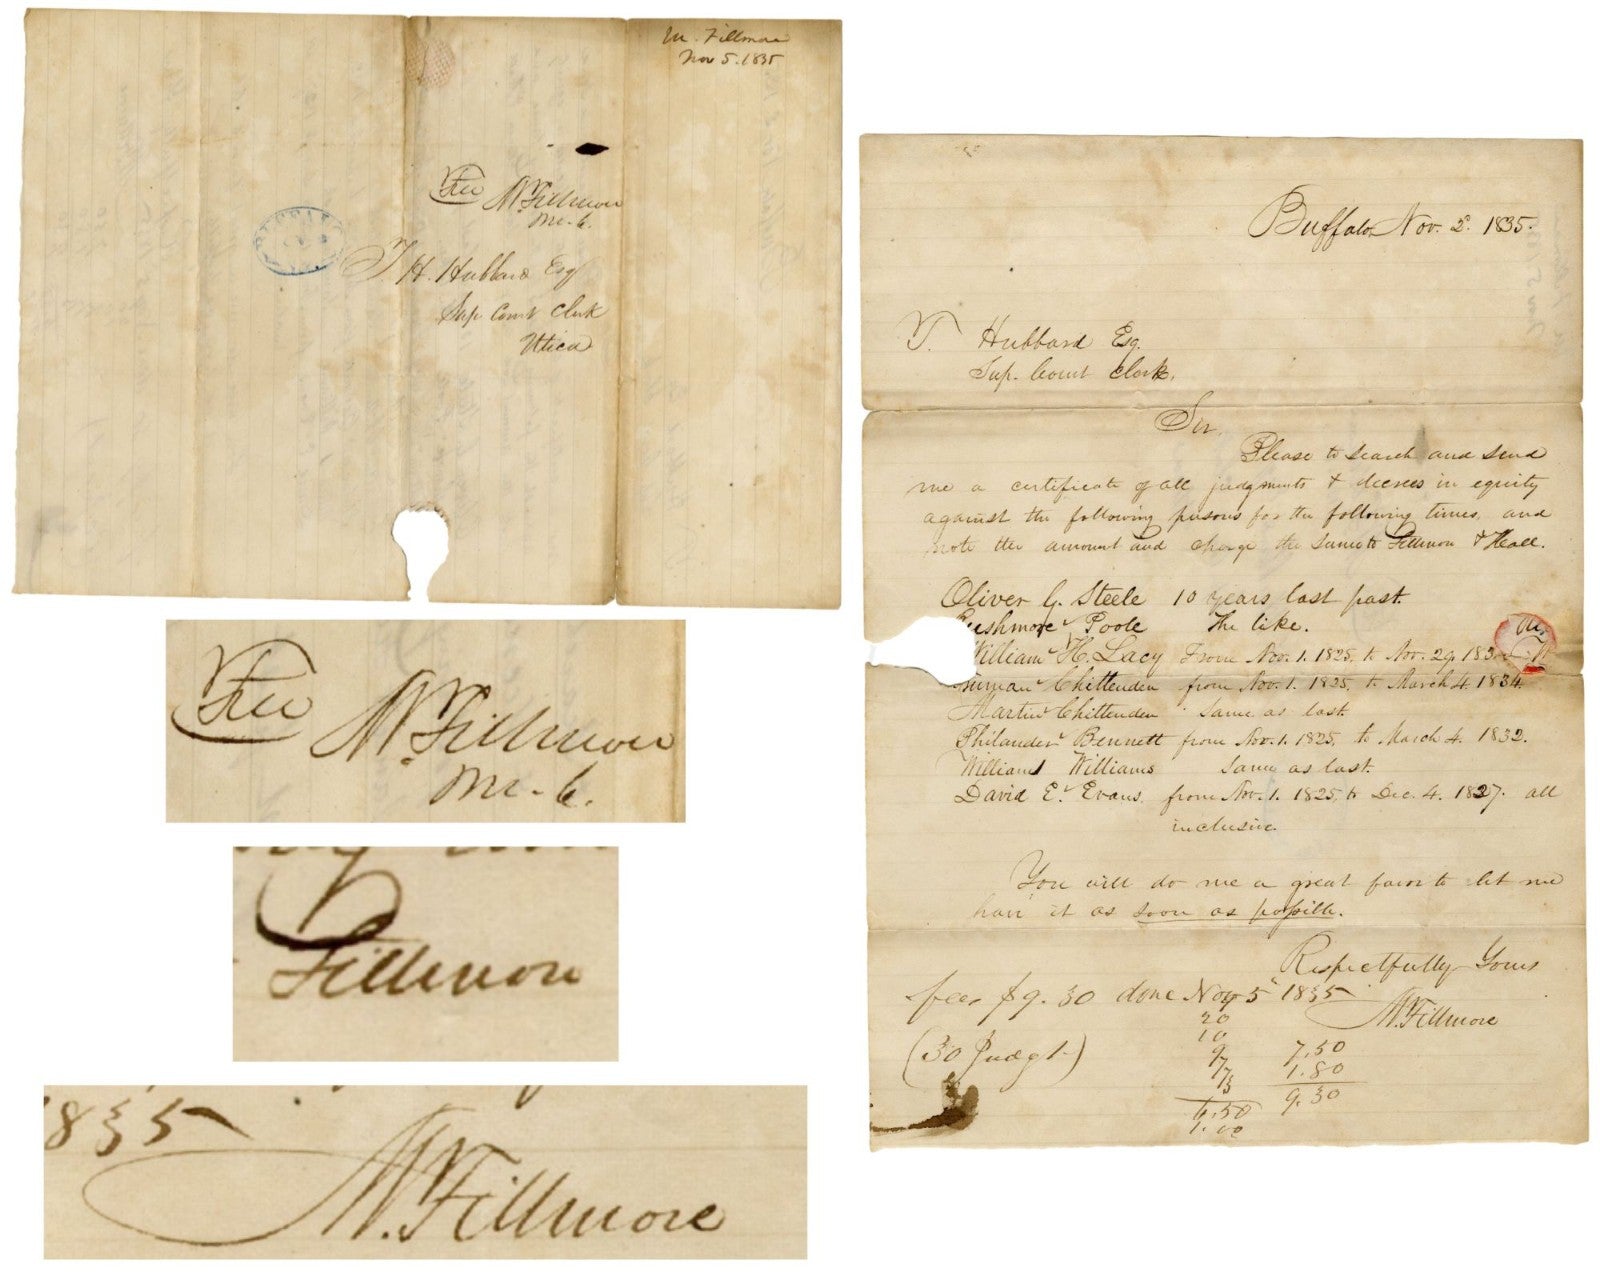 M. Fillmore
Nov 5. 1835
Free M. Fillmore
M. C.
T. H. Hubbard Esq
Sup. Court Clerk
Utica
Free M. Fillmore
M. C.
Fillmore
1835
M. Fillmore
Buffalo, Nov. 2. 1835.
T. Hubbard Esq.
Sup. Court Clerk.
Sir,
Please to search and send
me a certificate of all judgments & decrees in equity
against the following persons for the following times, and
note the amount and charge the same to Fillmore & Hall.
Oliver G. Steele 10 years last past.
Rushmore Poole The like.
William H. Lacy From Nov. 1. 1825, to Nov. 29, 183
Truman Chittenden from Nov. 1. 1825, to March 4. 1834.
Martin Chittenden Same as last.
Philander Bennett from Nov. 1. 1825, to March 4. 1832.
William Williams Same as last.
David E. Evans from Nov. 1. 1825, to Dec. 4. 1827. all
inclusive.
You will do me a great favor to let me
have it as soon as possible.
Respectfully Yours
M. Fillmore
fees $9.30 done Nov 5 1835
(30 Judgt.)
20
10
9
7
7.50
1.80
9.30
6.50
1.00